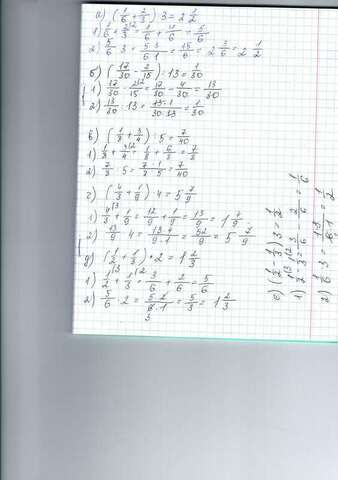 а) (1/6 + 2/3) 3 = 2 1/2
1) 1/6 + 2/3 = 1/6 + 4/6 = 5/6
2) 5/6 · 3 = 5·3/6·1 = 15/6 = 2 3/6 = 2 1/2
б) (17/30 - 2/15) : 13 = 1/30
1) 17/30 - 2/15 = 17/30 - 4/30 = 13/30
2) 13/30 : 13 = 13·1/30·13 = 1/30
в) (1/8 + 3/4) : 5 = 7/40
1) 1/8 + 3/4 = 1/8 + 6/8 = 7/8
2) 7/8 : 5 = 7·1/8·5 = 7/40
г) (4/3 + 1/9) · 4 = 5 7/9
1) 4/3 + 1/9 = 12/9 + 1/9 = 13/9 = 1 4/9
2) 13/9 · 4 = 13·4/9·1 = 52/9 = 5 7/9
д) (1/2 + 1/3) · 2 = 1 2/3
1) 1/2 + 1/3 = 3/6 + 2/6 = 5/6
2) 5/6 · 2 = 5·2/6·1 = 5/3 = 1 2/3
3
е) (1/2 - 1/3) 3 = 1/2
1) 1/2 - 1/3 = 3/6 - 2/6 = 1/6
2) 1/6 · 3 = 1·3/6·1 = 1/2